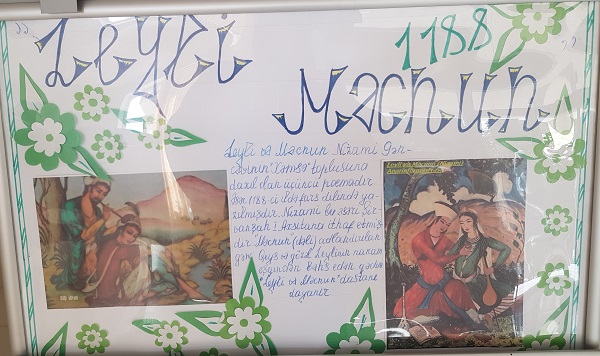 Leyli
1188
Məcnun
Leyli və Məcnun Nizami Gən-
cəvinin "Xəmsə" toplusuna
daxil olan üçüncü poemadır.
Əsər 1188-ci ildə fars dilində ya-
zılmışdır. Nizami bu əsəri Şir-
vanşah I Axsitana ithaf etmiş-
dir. "Məcnun (dəli) adlandırılan
gənc Qeys və gözəl Leylinin nakam
eşqindən bəhs edən qədim
"Leyli və Məcnun" dastanı
dayanır
Leyli və Məcnun (Nizami